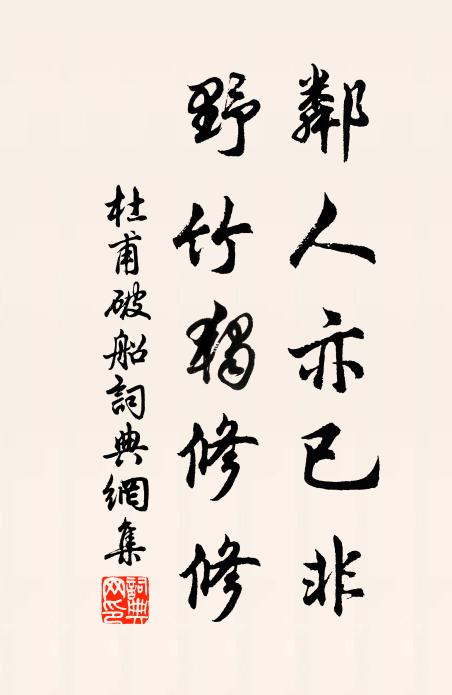 鄰人亦已非
野竹獨修修
杜甫破船詞典網集
詞典網印